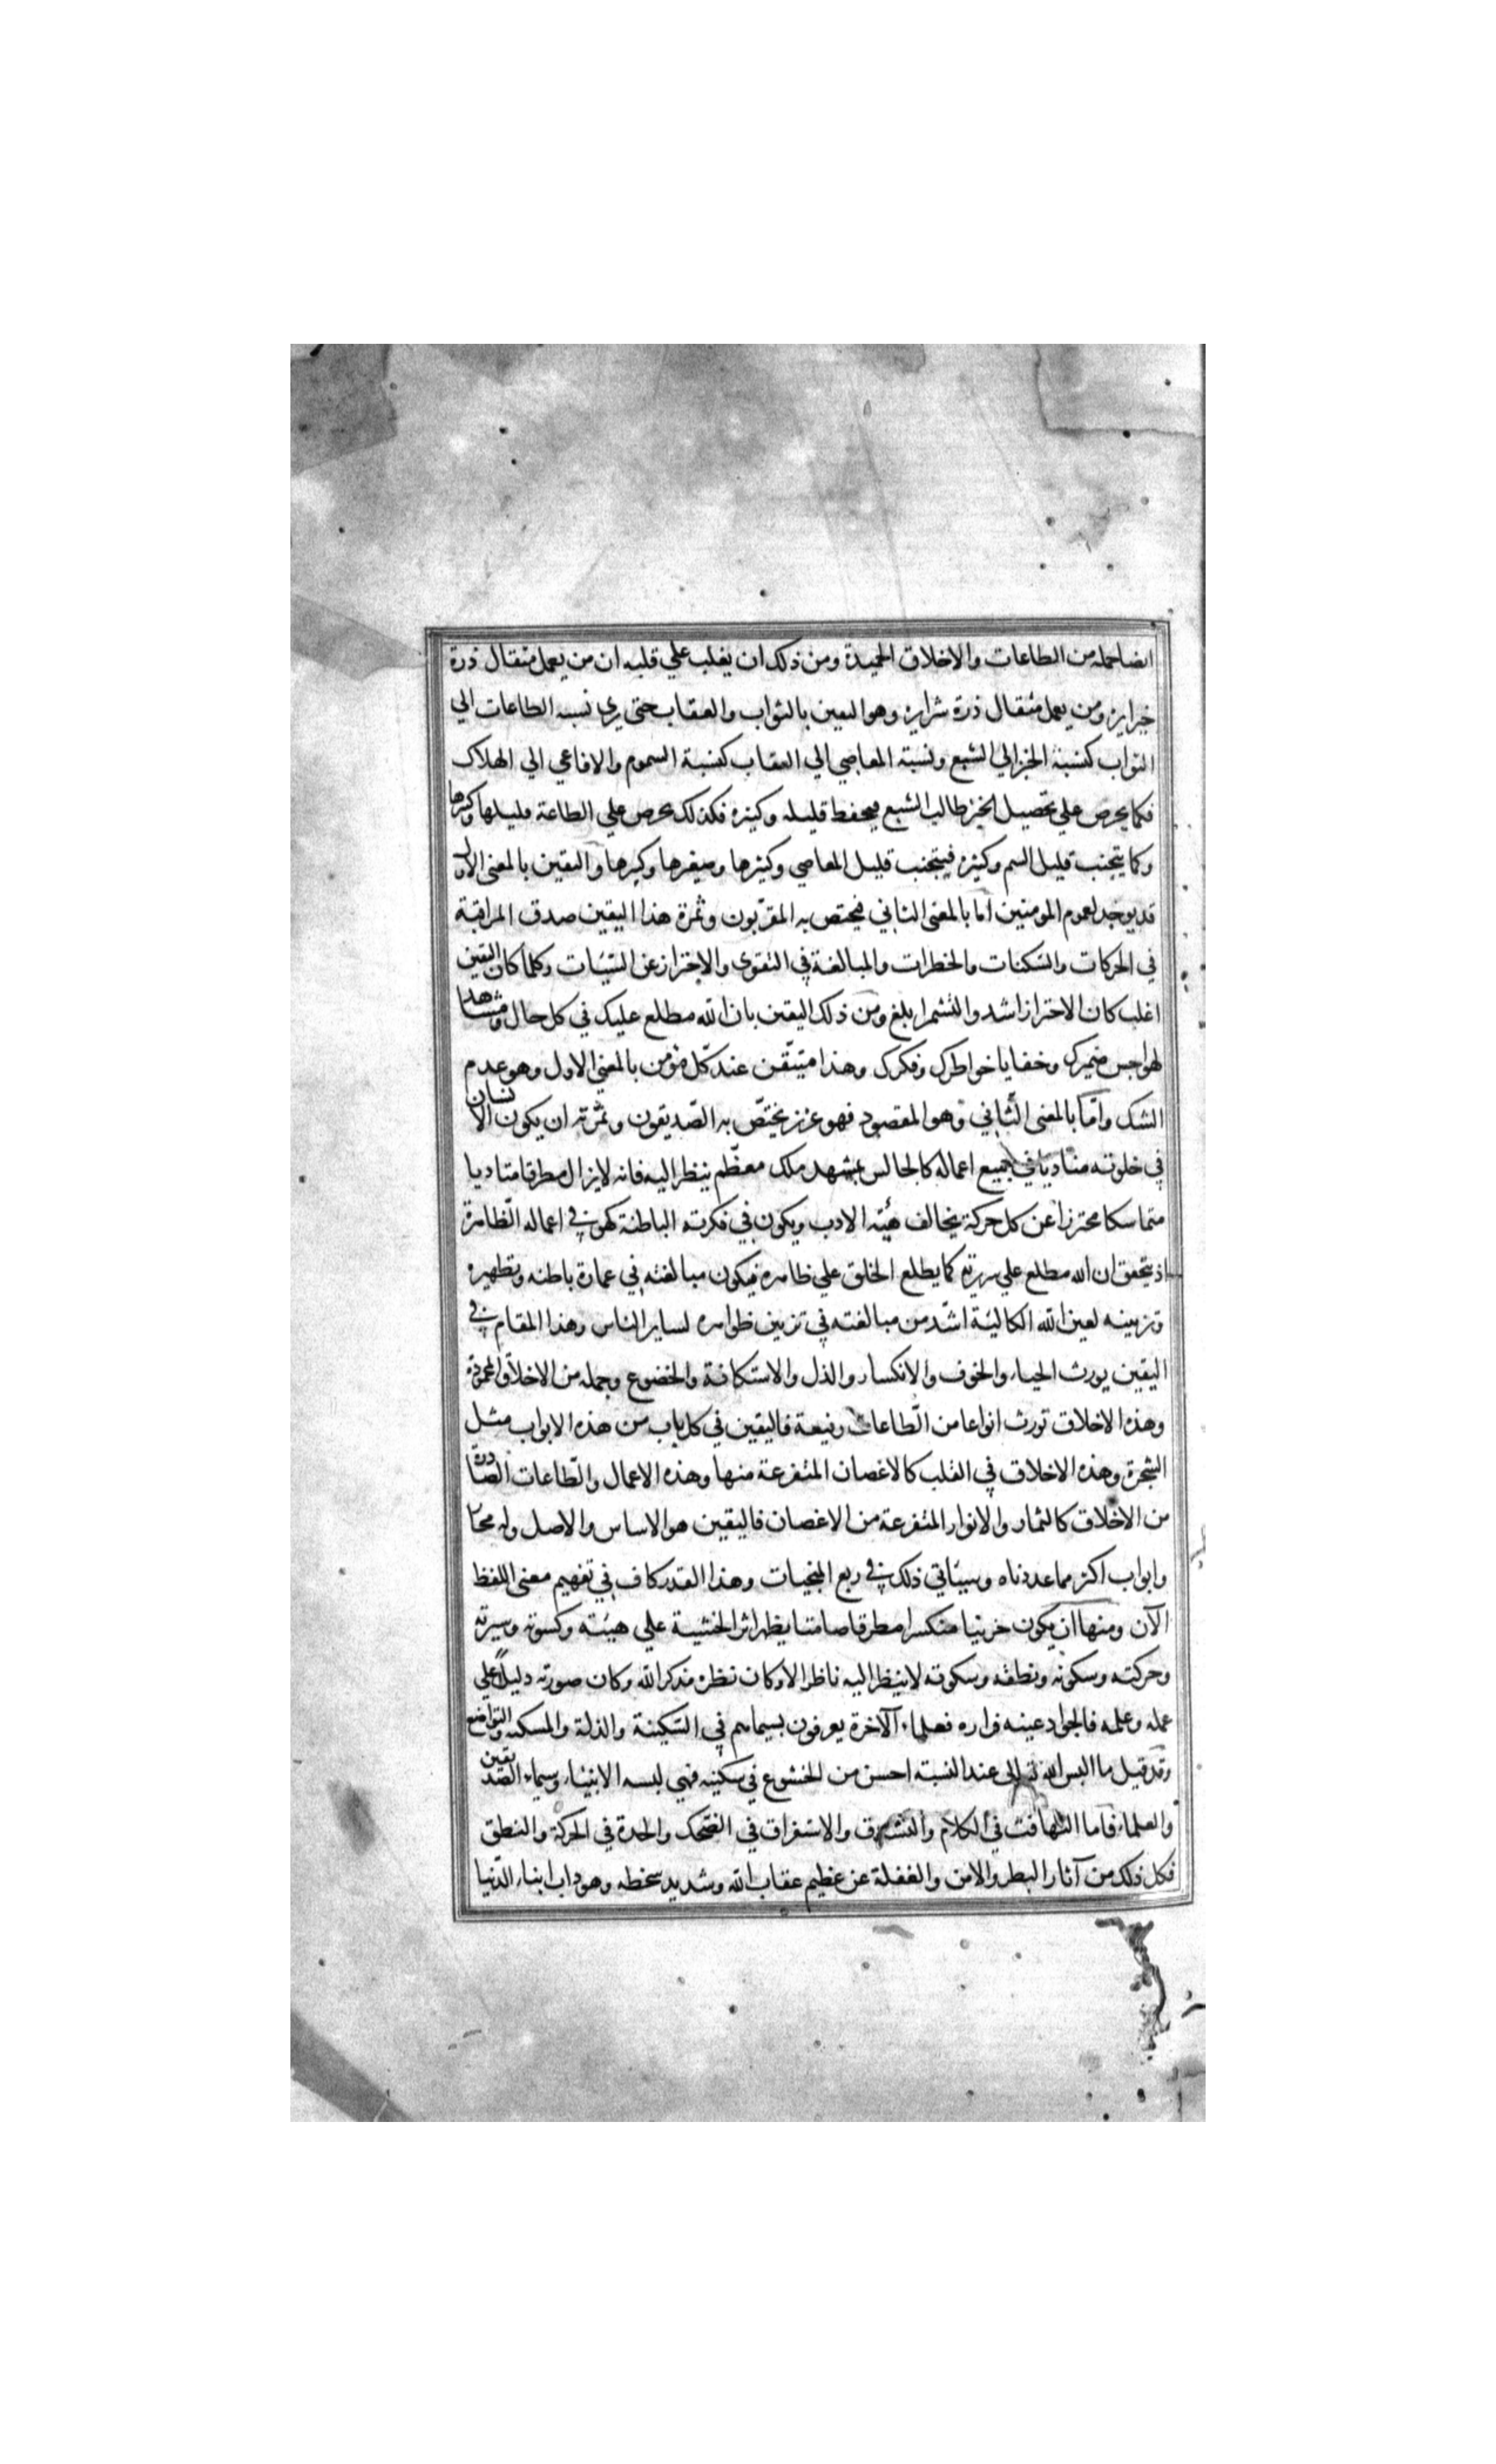 ايضا جمله من الطاعات والاخلاق الحميدة ومن ذلك ان يغلب علي قلبه ان من يعمل مثقال ذرة
خيرا يره ومن يعمل مثقال ذرة شرا يره وهو اليقين بالثواب والعقاب حتى يرى نسبه الطاعات الي
الثواب كنسبة الخبز الي الشبع ونسبة المعاصي الي العقاب كنسبة السموم والافاعي الي الهلاك
فكما يحرص علي تحصيل الخبز طالب الشبع فيحفظ قليله وكثيره فكذلك يحرص علي الطاعة قليلها وكثيرها
وكما يتجنب قليل السم وكثيره فيتجنب قليل المعاصي وكثيرها وصغيرها وكبيرها واليقين بالمعنى الاول
قد يوجد لعموم المومنين اما بالمعنى الثاني فيختص به المقرّبون وثمرة هذا اليقين صدق المراقبة
في الحركات والسّكنات والخطرات والمبالغة في التقوى والاحتراز عن السّيّات وكلما كان اليقين
اغلب كان الاحتراز اشد والتشمر ابلغ ومن ذلك اليقين بان الله مطلع عليك في كل حال ومشاهد
لهواجس ضميرك وخفايا خواطرك وفكرك وهذا متيقّن عند كلّ مؤمن بالمعني الاول وهو عدم
الشك وامّا بالمعنى الثّاني وهو المقصود فهو عزيز يختصّ به الصّديقون وثمرته ان يكون الانسان
في خلوته متادبا في جميع اعماله كالجالس بمشهد ملك معظّم ينظر اليه فانه لايزال مطرقا متادبا
متماسكا محترزا عن كل حركة يخالف هيئه الادب ويكون في فكرته الباطنة كهو في اعماله الظاهرة
اذ يتحقق ان الله مطلع علي سريرته كما يطلع الخلق علي ظاهره فيكون مبالغته في عمارة باطنه وتطهيره
وتزيينه لعين الله الكالئة اشدّ من مبالغته في تزيين ظواهره لساير الناس وهذا المقام في
اليقين يورث الحياء والخوف والانكسار والذل والاستكانة والخضوع وجمله من الاخلاق المحمودة
وهذه الاخلاق تورث انواعا من الطّاعات رفيعة فاليقين في كل باب من هذه الابواب مثل
الشجرة وهذه الاخلاق في القلب كالاغصان المتفرعة منها وهذه الاعمال والطّاعات الصّادرة
من الاخلاق كالثمار والانوار المتفرعة من الاغصان فاليقين هو الاساس والاصل وله مجار
وابواب اكثر مما عددناه وسياتي ذلك في ربع المنجيات وهذا القدر كاف في تفهيم معنى اللفظ
الآن ومنها ان يكون حزينا منكسرا مطرقا صامتا يظهر اثر الخشية علي هيئته وكسوته وسيرته
وحركته وسكونه ونطقه وسكوته لاينظر اليه ناظر الا وكان نظره مذكر الله وكان صورته دليلا علي
عمله وعلمه فالجواد عينه فراره فعلماء الآخرة يعرفون بسيماهم في السّكينة والذلة والمسكنه والتواضع
وقد قيل ما البس الله تعالى عبدا لبسة احسن من الخشوع في سكينه فهي لبسه الانبياء وسيماء الصديقين
والعلماء فاما التهافت في الكلام والتشدق والاستغراق في الضحك والحدة في الحركة والنطق
فكل ذلك من آثار البطر والامن والغفلة عن عظيم عقاب الله وشديد سخطه وهو داب ابناء الدّنيا